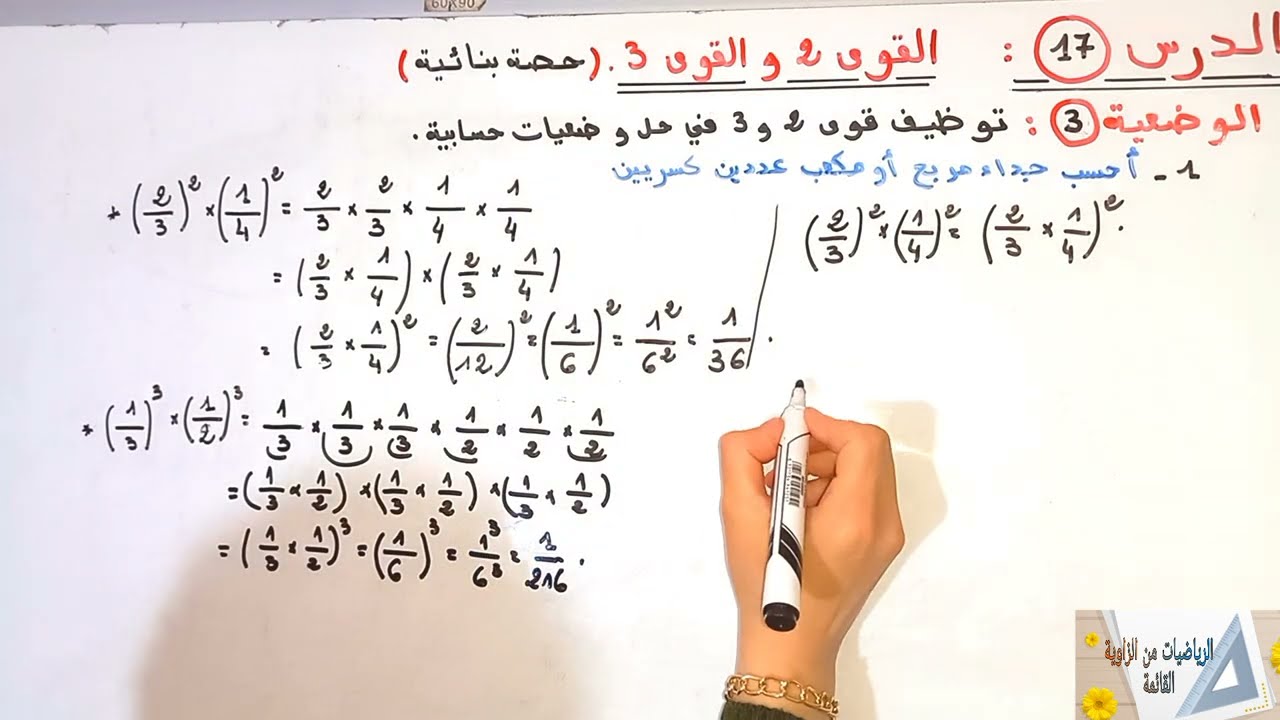 60x90
الدرس 17 : القوى 2 و القوى 3 . (حصة بنائية)
الوضعية 3 : توظيف قوى 2 و 3 في حل و ضعيات حسابية .
1 - أحسب جداء مربع أو مكعب عددين كسريين
* (2/3)² × (1/4)² = 2/3 × 2/3 × 1/4 × 1/4
= (2/3 × 1/4) × (2/3 × 1/4)
= (2/3 × 1/4)² = (2/12)² = (1/6)² = 1²/6² = 1/36 .
* (1/3)³ × (1/2)³ = 1/3 × 1/3 × 1/3 × 1/2 × 1/2 × 1/2
= (1/3 × 1/2) × (1/3 × 1/2) × (1/3 × 1/2)
= (1/3 × 1/2)³ = (1/6)³ = 1³/6³ = 1/216 .
(2/3)² × (1/4)² = (2/3 × 1/4)² .
الرياضيات من الزاوية
القائمة